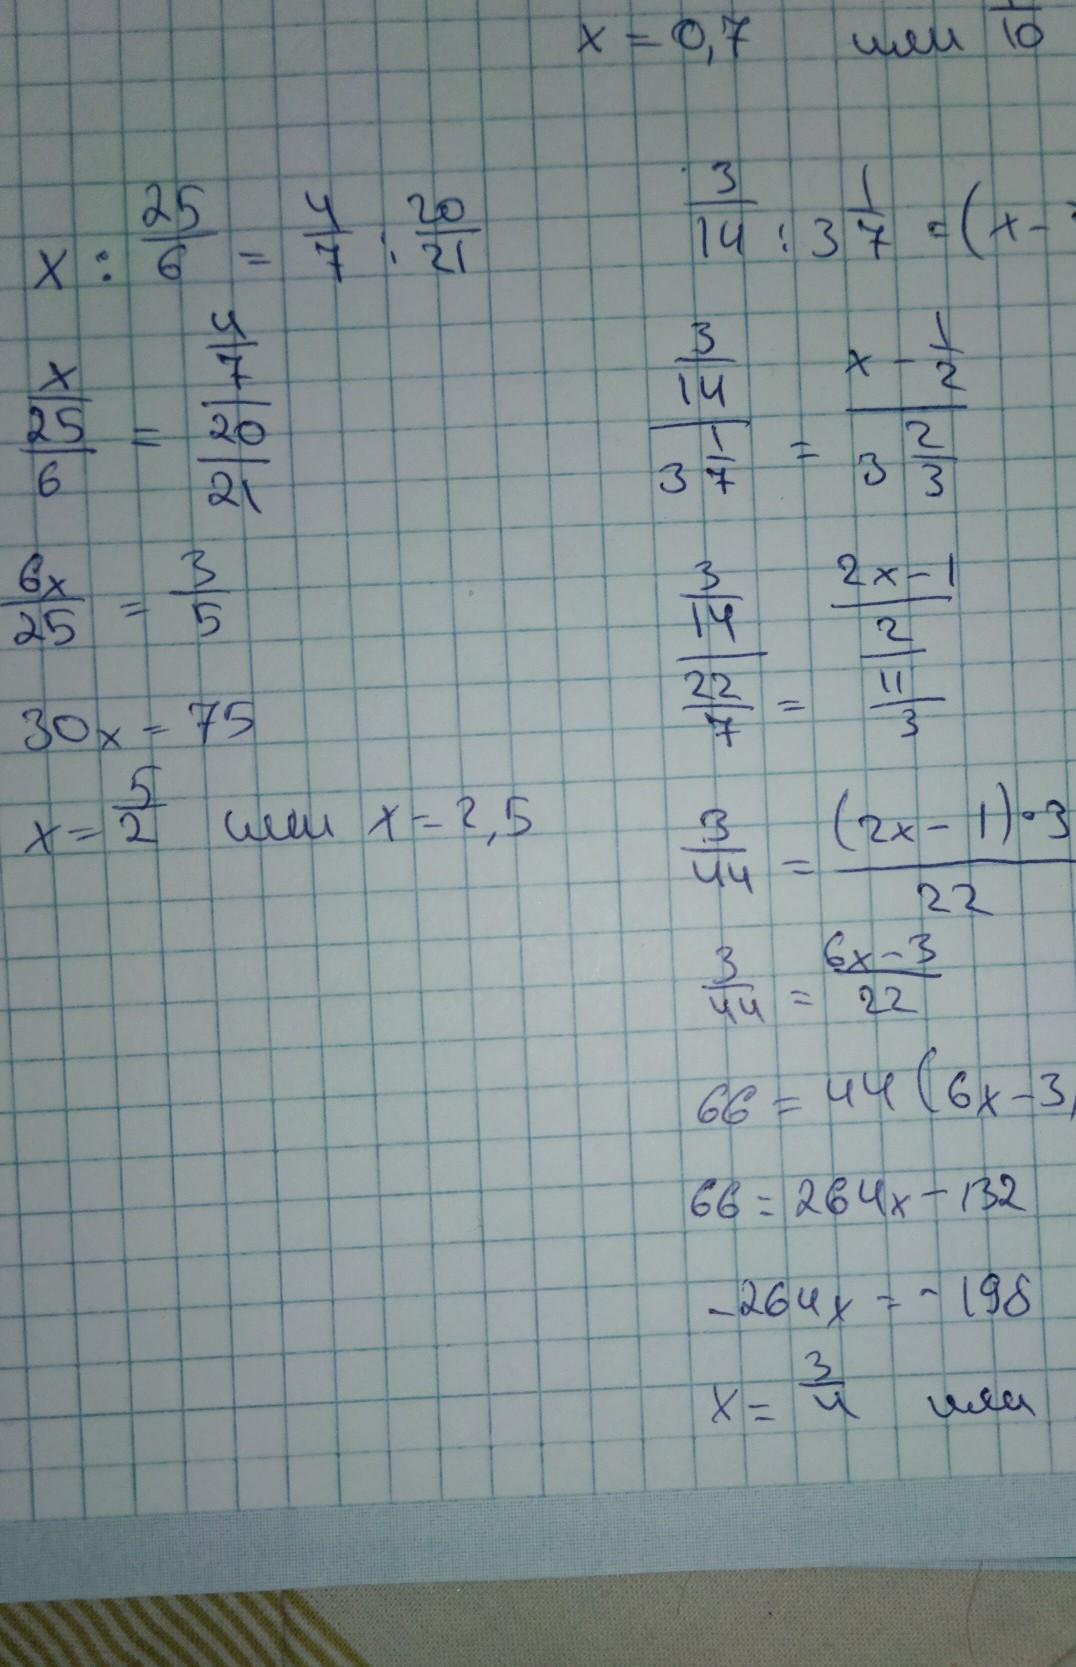 x = 0,7 или 1/10
x : 25/6 = 4/7 : 20/21
x/(25/6) = (4/7)/(20/21)
6x/25 = 3/5
30x = 75
x = 5/2 или x = 2,5
3/14 : 3 1/7 = (x -
(3/14)/(3 1/7) = (x - 1/2)/(3 2/3)
(3/14)/(22/7) = ((2x-1)/2)/(11/3)
3/44 = (2x - 1)·3/22
3/44 = (6x-3)/22
66 = 44(6x-3)
66 = 264x - 132
-264x = -198
x = 3/4 или